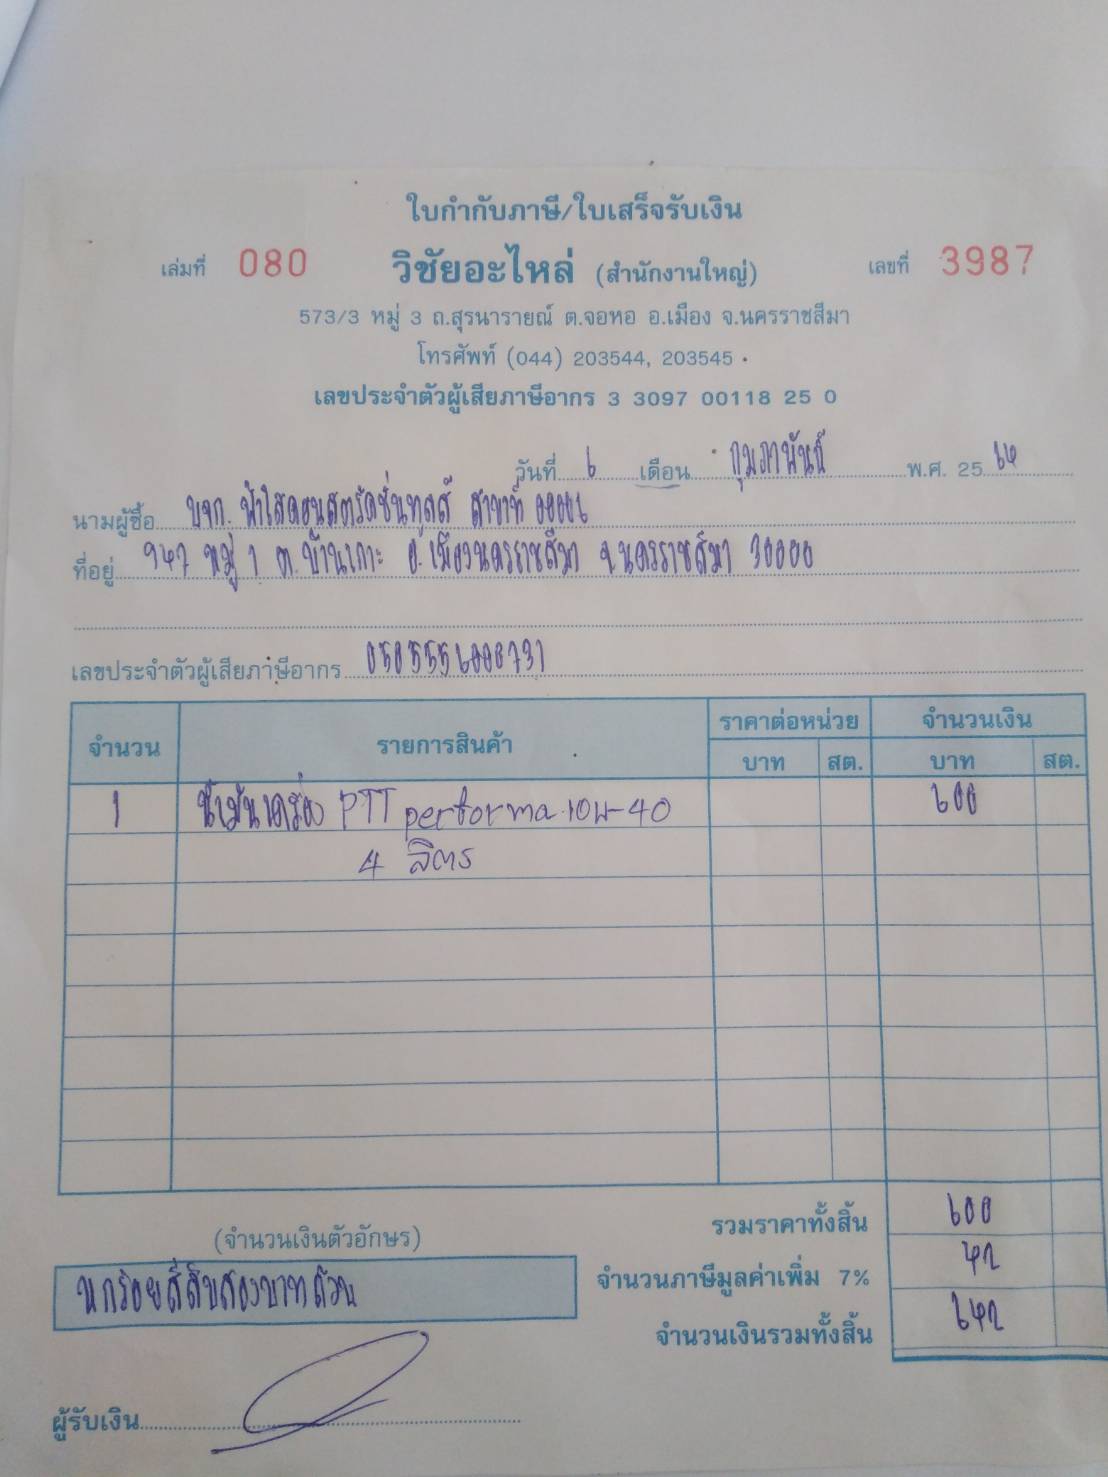 ใบกำกับภาษี/ใบเสร็จรับเงิน
เล่มที่ 080 วิชัยอะไหล่ (สำนักงานใหญ่) เลขที่ 3987
573/3 หมู่ 3 ถ.สุรนารายณ์ ต.จอหอ อ.เมือง จ.นครราชสีมา
โทรศัพท์ (044) 203544, 203545
เลขประจำตัวผู้เสียภาษีอากร 3 3097 00118 25 0
วันที่ 6 เดือน กุมภาพันธ์ พ.ศ. 25 64
นามผู้ซื้อ บจก. ฟ้าใสคอนสตรัคชั่นทูลส์ สาขาที่ 00001
ที่อยู่ 947 หมู่ 1 ต.บ้านเกาะ อ.เมืองนครราชสีมา จ.นครราชสีมา 30000
เลขประจำตัวผู้เสียภาษีอากร 0505556000731
จำนวน รายการสินค้า ราคาต่อหน่วย จำนวนเงิน
บาท สต. บาท สต.
1 น้ำมันเครื่อง PTT performa 10W-40 600
4 ลิตร
รวมราคาทั้งสิ้น 600
(จำนวนเงินตัวอักษร)
หกร้อยสี่สิบสองบาทถ้วน จำนวนภาษีมูลค่าเพิ่ม 7% 42
จำนวนเงินรวมทั้งสิ้น 642
ผู้รับเงิน